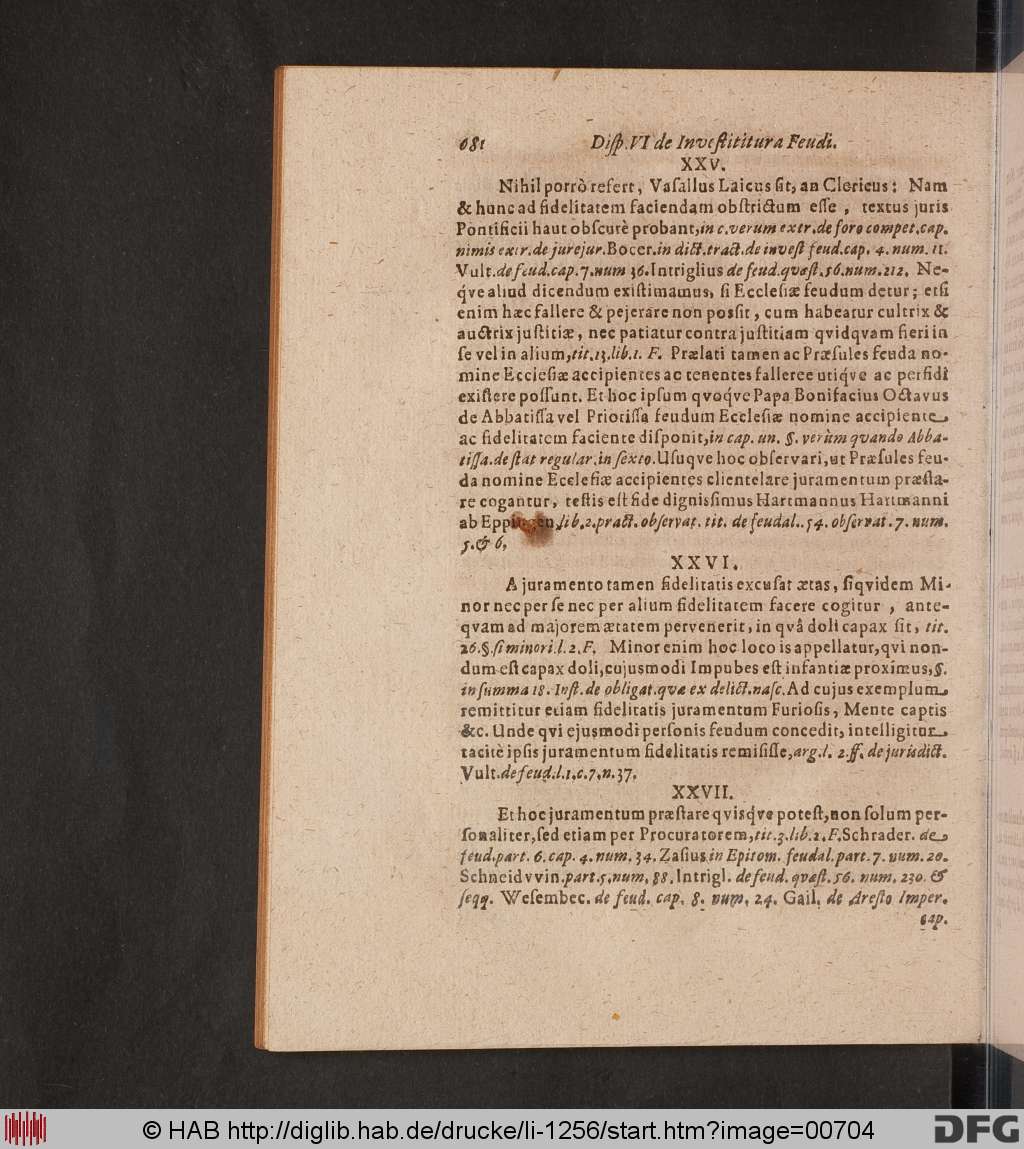 681 Disp. VI de Investititura Feudi.
XXV.
Nihil porrò refert, Vasallus Laicus sit, an Clericus: Nam
& hunc ad fidelitatem faciendam obstrictum esse, textus juris
Pontificii haut obscurè probant, in c. verum extr. de foro compet. cap.
nimis extr. de jurejur. Bocer. in dict. tract. de invest feud. cap. 4. num. 11.
Vult. de feud. cap. 7. num 36. Intriglius de feud. quæst. 56. num. 212. Ne-
q́ve aliud dicendum existimamus, si Ecclesiæ feudum detur; etsi
enim hæc fallere & pejerare non possit, cum habeatur cultrix &
auctrix justitiæ, nec patiatur contra justitiam qvidqvam fieri in
se vel in alium, tit. 13. lib. 1. F. Prælati tamen ac Præsules feuda no-
mine Ecclesiæ accipientes ac tenentes falleree utiq́ve ac perfidî
existere possunt. Et hoc ipsum qvoq́ve Papa Bonifacius Octavus
de Abbatissa vel Priorissa feudum Ecclesiæ nomine accipiente
ac fidelitatem faciente disponit, in cap. un. §. verùm qvando Abba-
tissa. de stat regular. in sexto. Usuqve hoc observari, ut Præsules feu-
da nomine Ecclesiæ accipientes clientelare juramentum præsta-
re cogantur, testis est fide dignissimus Hartmannus Hartmanni
ab Eppingen, lib. 2. pract. observat. tit. de feudal.. 54. observat. 7. num.
5. & 6.
XXVI.
A juramento tamen fidelitatis excusat ætas, siqvidem Mi-
nor nec per se nec per alium fidelitatem facere cogitur, ante-
qvam ad majorem ætatem pervenerit, in qvâ doli capax sit, tit.
26. §. si minori. l. 2. F. Minor enim hoc loco is appellatur, qvi non-
dum est capax doli, cujusmodi Impubes est infantiæ proximus, §.
in summa 18. Inst. de obligat. qvæ ex delict. nasc. Ad cujus exemplum
remittitur etiam fidelitatis juramentum Furiosis, Mente captis
&c. Unde qvi ejusmodi personis feudum concedit, intelligitur
tacitè ipsis juramentum fidelitatis remisisse, arg. l. 2. ff. de jurisdict.
Vult. de feud. l. 1. c. 7. n. 37.
XXVII.
Et hoc juramentum præstare qvisq́ve potest, non solum per-
sonaliter, sed etiam per Procuratorem, tit. 3. lib. 2. F. Schrader. de
feud. part. 6. cap. 4. num. 34. Zasius in Epitom. feudal. part. 7. num. 20.
Schneidvvin. part. 5. num. 88. Intrigl. de feud. qvæst. 56. num. 230. &
seqq. Wesembec. de feud. cap. 8. num. 24. Gail. de Aresto Imper.
cap.
© HAB http://diglib.hab.de/drucke/li-1256/start.htm?image=00704
DFG